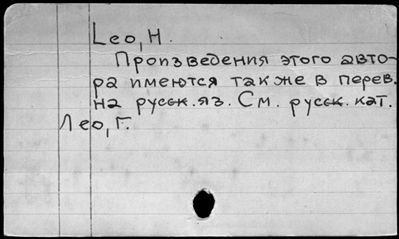 Leo, H.
Произведения этого авто-
ра имеются также в перев.
на русск. яз. См. русск. кат.
Лео, Г.